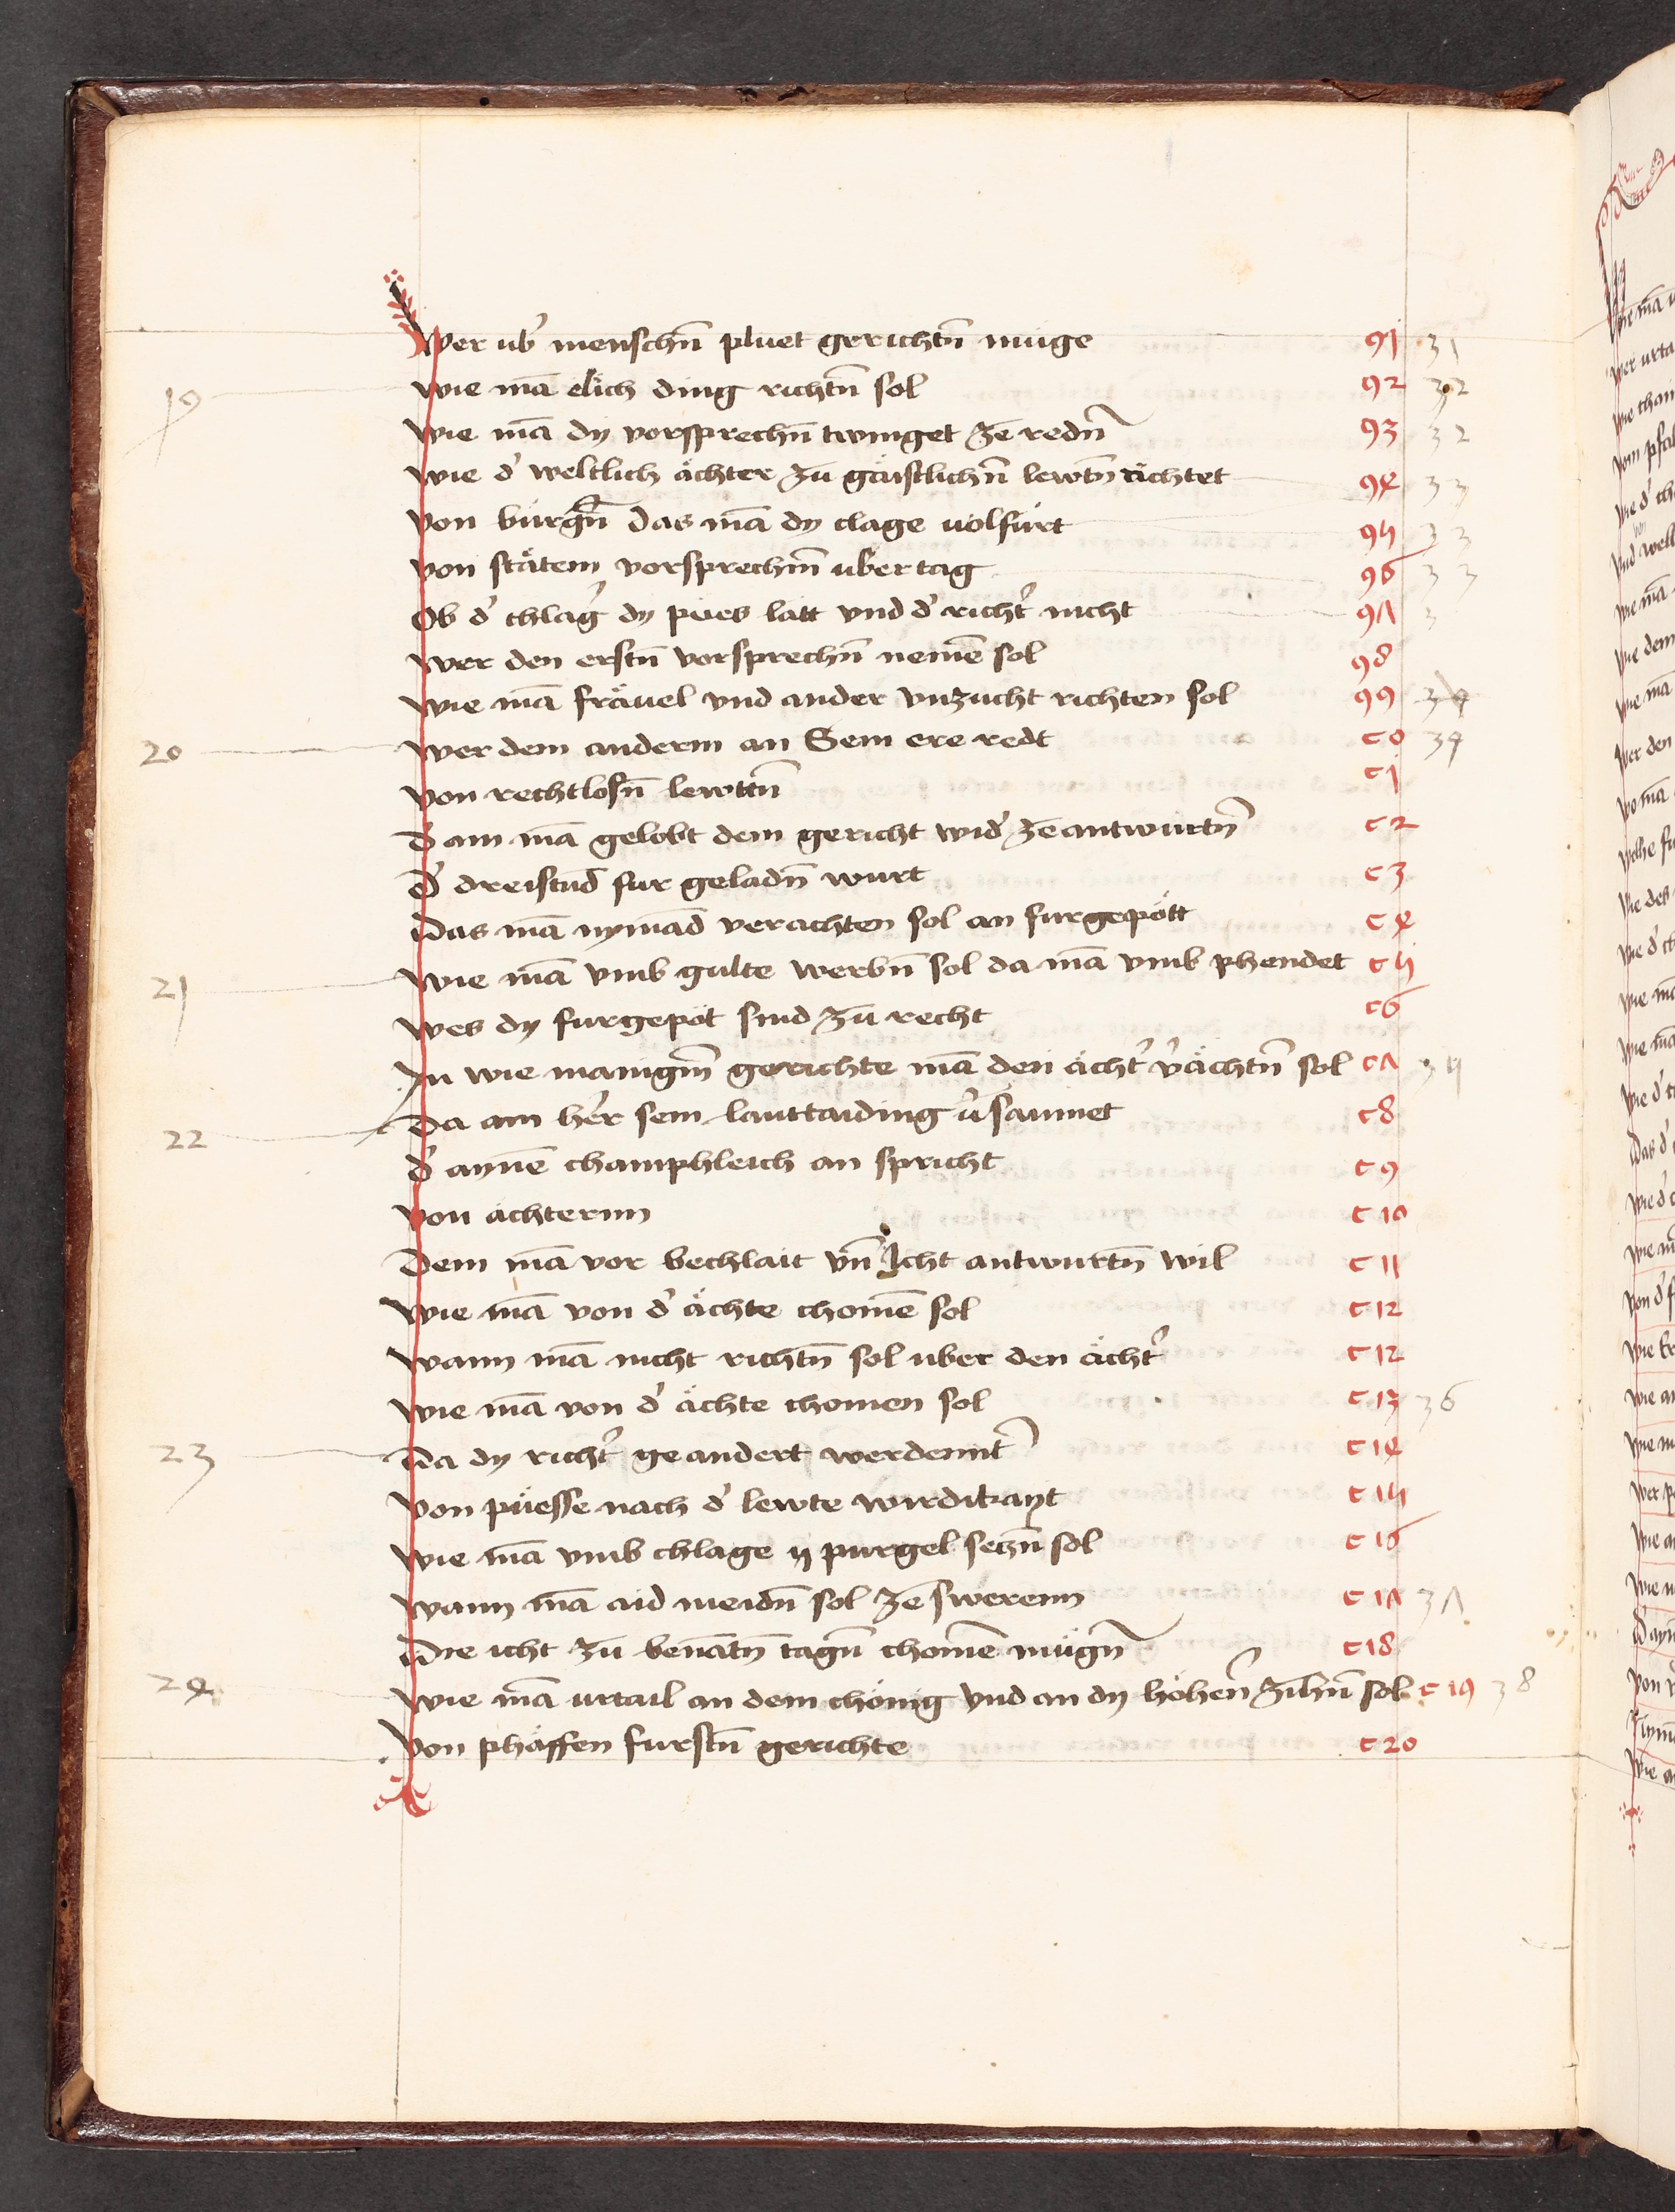 Wer ub' menschn̄ pluet gerichtn̄ muge 91 31
19 wie mā elich ding richtn̄ sol 92 32
wie mā dy vorsprechn̄ twinget zē redn̄ 93 32
wie d' weltlich ächter zū gäistlichn̄ lewtn̄ richtet 94 33
von burgn̄ das mā dy clage uolfürt 95 33
von stätem vorsprechn̄ uber tag 96 33
Ob d' chlag' dy pues lätt vnd d' richt' nicht 97 3
wer den erstn̄ vorsprechn̄ nemē sol 98
wie mā fräuel vnd ander vnzucht richten sol 99 34
20 wer dem anderm an Sein ere redt c0 34
von rechtlosn̄ lewttn̄ c1
d' ain mā gelobt dem gericht wid' zē antwurtn̄ c2
d' dreistūd fur geladn̄ wurt c3
Das mā nymād verachten sol an furgepött c4
21 wie mā vmb gulte werbn̄ sol da mā vmb phendet c5
wes dy furgepöt sind zū recht c6
In wie manigm̄ gerichte mā den ächt' v'ächtn̄ sol c7 35
22 Da ain her sein lanttaiding v'saumet c8
d' aynē champhleich an spricht c9
von ächterinn c10
Dem mā vor bechlait vn̄ Icht antwurtn̄ wil c11
wie mā von d' ächte chomē sol c12
wann mā nicht richtn̄ sol uber den ächt' c12
wie mā von d' ächte chomen sol c13 36
23 Da dy richt' geandert werdennt c14
von püesse nach d' lewte wirdikayt c15
wie mā vmb chlage ij purgel seczn̄ sol c16
wann mā aid meidn̄ sol zē swerenn c17 37
Die icht zū benātn̄ tagn̄ chomē mügn̄ c18
24 wie mā urtail an dem chönig vnd an dy höhen̄ zihn̄ sol c19 38
von phäffen furstn̄ gerichte c20